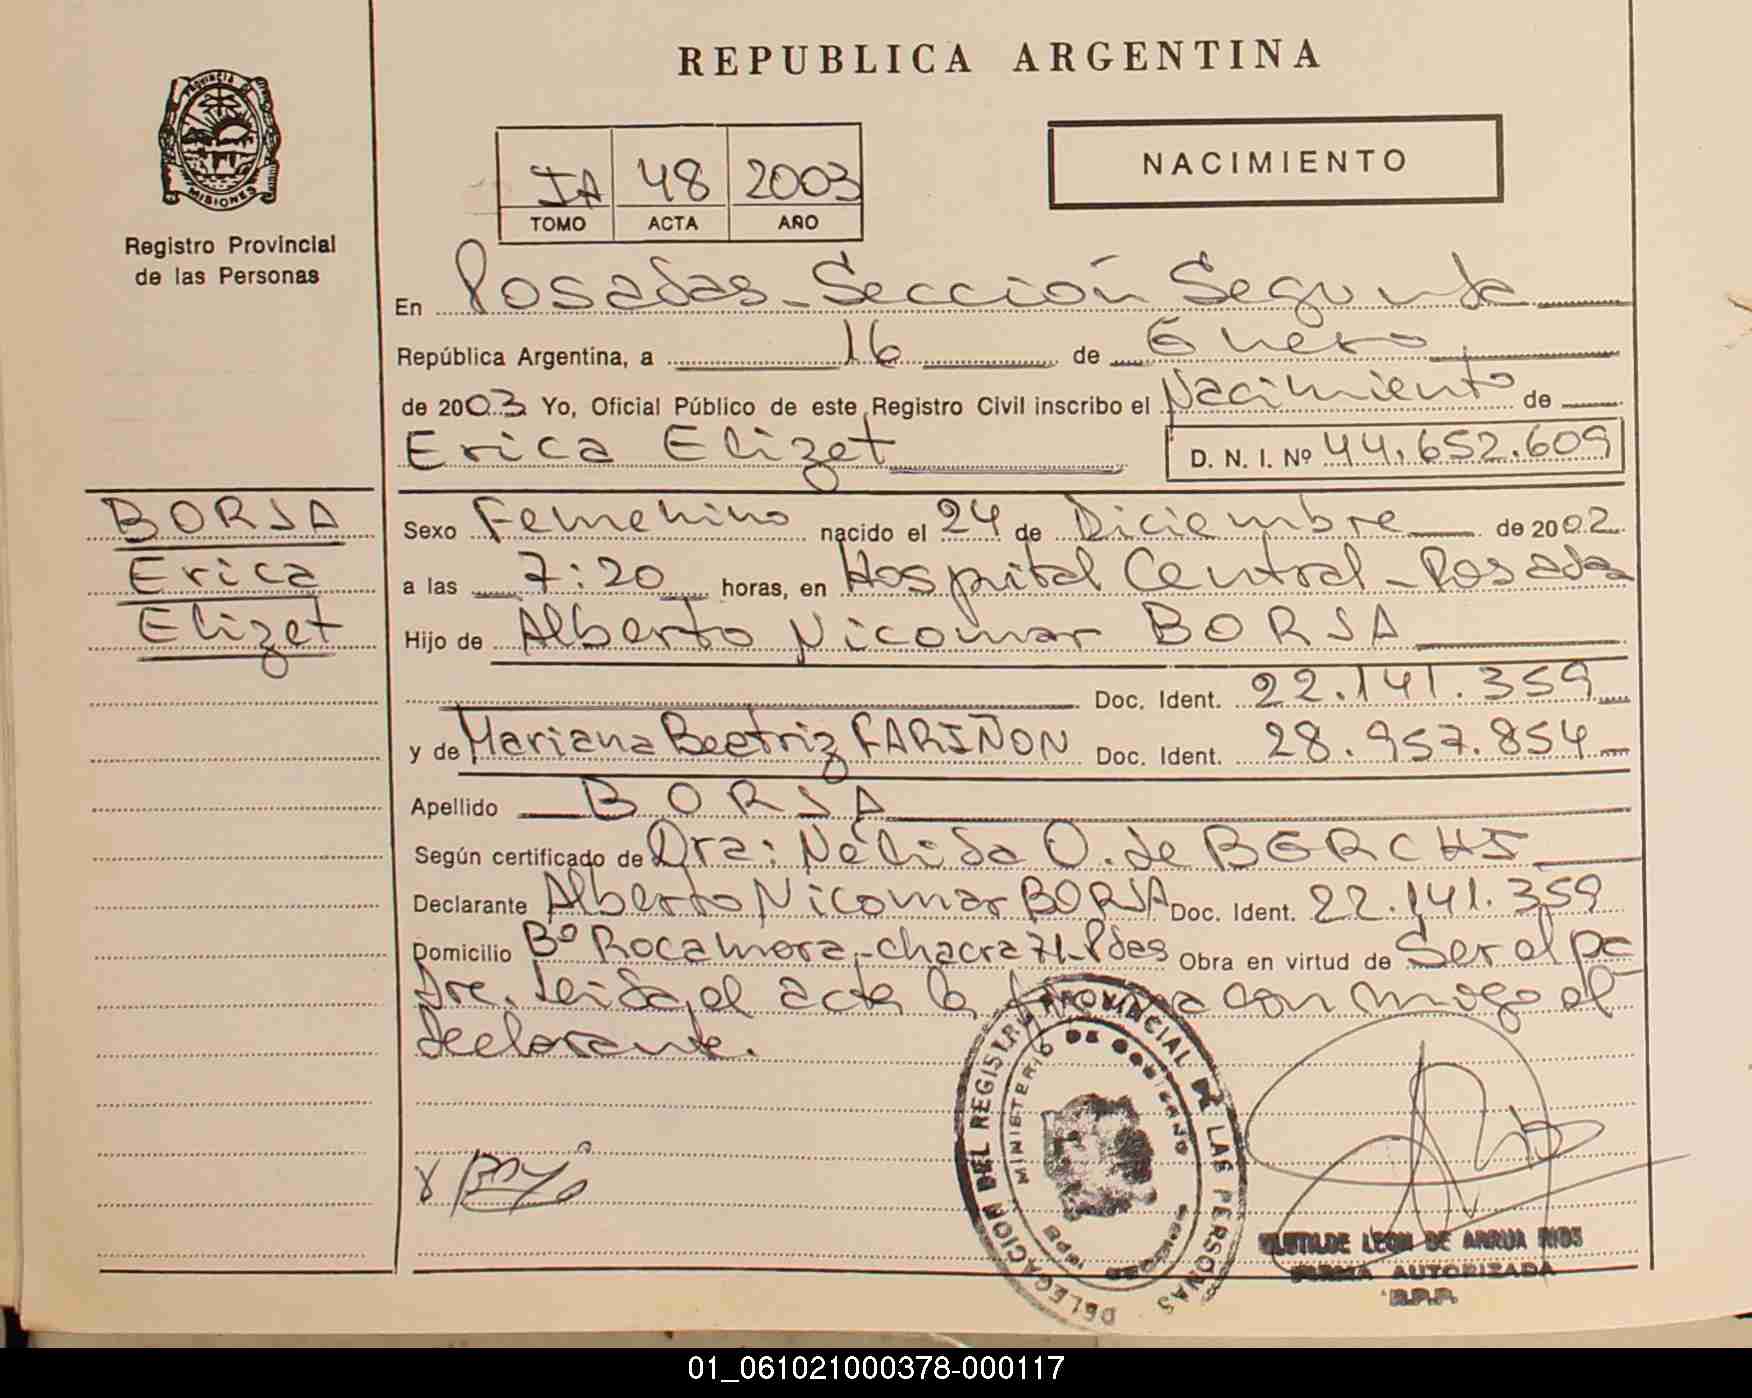 REPUBLICA ARGENTINA
PROVINCIA DE
MISIONES
Registro Provincial
de las Personas
IA 48 2003
TOMO ACTA AÑO
NACIMIENTO
En Posadas - Sección Segunda
República Argentina, a 16 de Enero
de 2003 Yo, Oficial Público de este Registro Civil inscribo el Nacimiento de
Erica Elizet D. N. I. Nº 44.652.609
BORJA
Erica
Elizet
Sexo Femenino nacido el 24 de Diciembre de 2002
a las 7:20 horas, en Hospital Central - Posadas
Hijo de Alberto Nicomar BORJA
Doc. Ident. 22.141.359
y de Mariana Beatriz FARIÑON Doc. Ident. 28.957.854
Apellido BORJA
Según certificado de Dra: Nélida O. de BERCHI
Declarante Alberto Nicomar BORJA Doc. Ident. 22.141.359
Domicilio Bº Rocamora - chacra 71 - Pdas Obra en virtud de Ser el pa
dre. Leida, el acta la firma con migo el
declarante.
DELEGACION DEL REGISTRO PROVINCIAL DE LAS PERSONAS
MINISTERIO DE GOBIERNO
CLOTILDE LEON DE ARRUA RIOS
FIRMA AUTORIZADA
R.P.P.
01_061021000378-000117